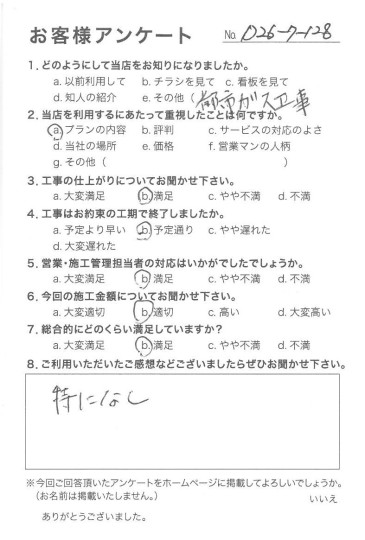 お客様アンケート No. D26-7-128
1. どのようにして当店をお知りになりましたか。
a. 以前利用して b. チラシを見て c. 看板を見て
d. 知人の紹介 e. その他 ( 都市ガス工事
2. 当店を利用するにあたって重視したことは何ですか。
a. プランの内容 b. 評判 c. サービスの対応のよさ
d. 当社の場所 e. 価格 f. 営業マンの人柄
g. その他 ( )
3. 工事の仕上がりについてお聞かせ下さい。
a. 大変満足 b. 満足 c. やや不満 d. 不満
4. 工事はお約束の工期で終了しましたか。
a. 予定より早い b. 予定通り c. やや遅れた
d. 大変遅れた
5. 営業・施工管理担当者の対応はいかがでしたでしょうか。
a. 大変満足 b. 満足 c. やや不満 d. 不満
6. 今回の施工金額についてお聞かせ下さい。
a. 大変適切 b. 適切 c. 高い d. 大変高い
7. 総合的にどのくらい満足していますか?
a. 大変満足 b. 満足 c. やや不満 d. 不満
8. ご利用いただいたご感想などございましたらぜひお聞かせ下さい。
特になし
※今回ご回答頂いたアンケートをホームページに掲載してよろしいでしょうか。
(お名前は掲載いたしません。) いいえ
ありがとうございました。